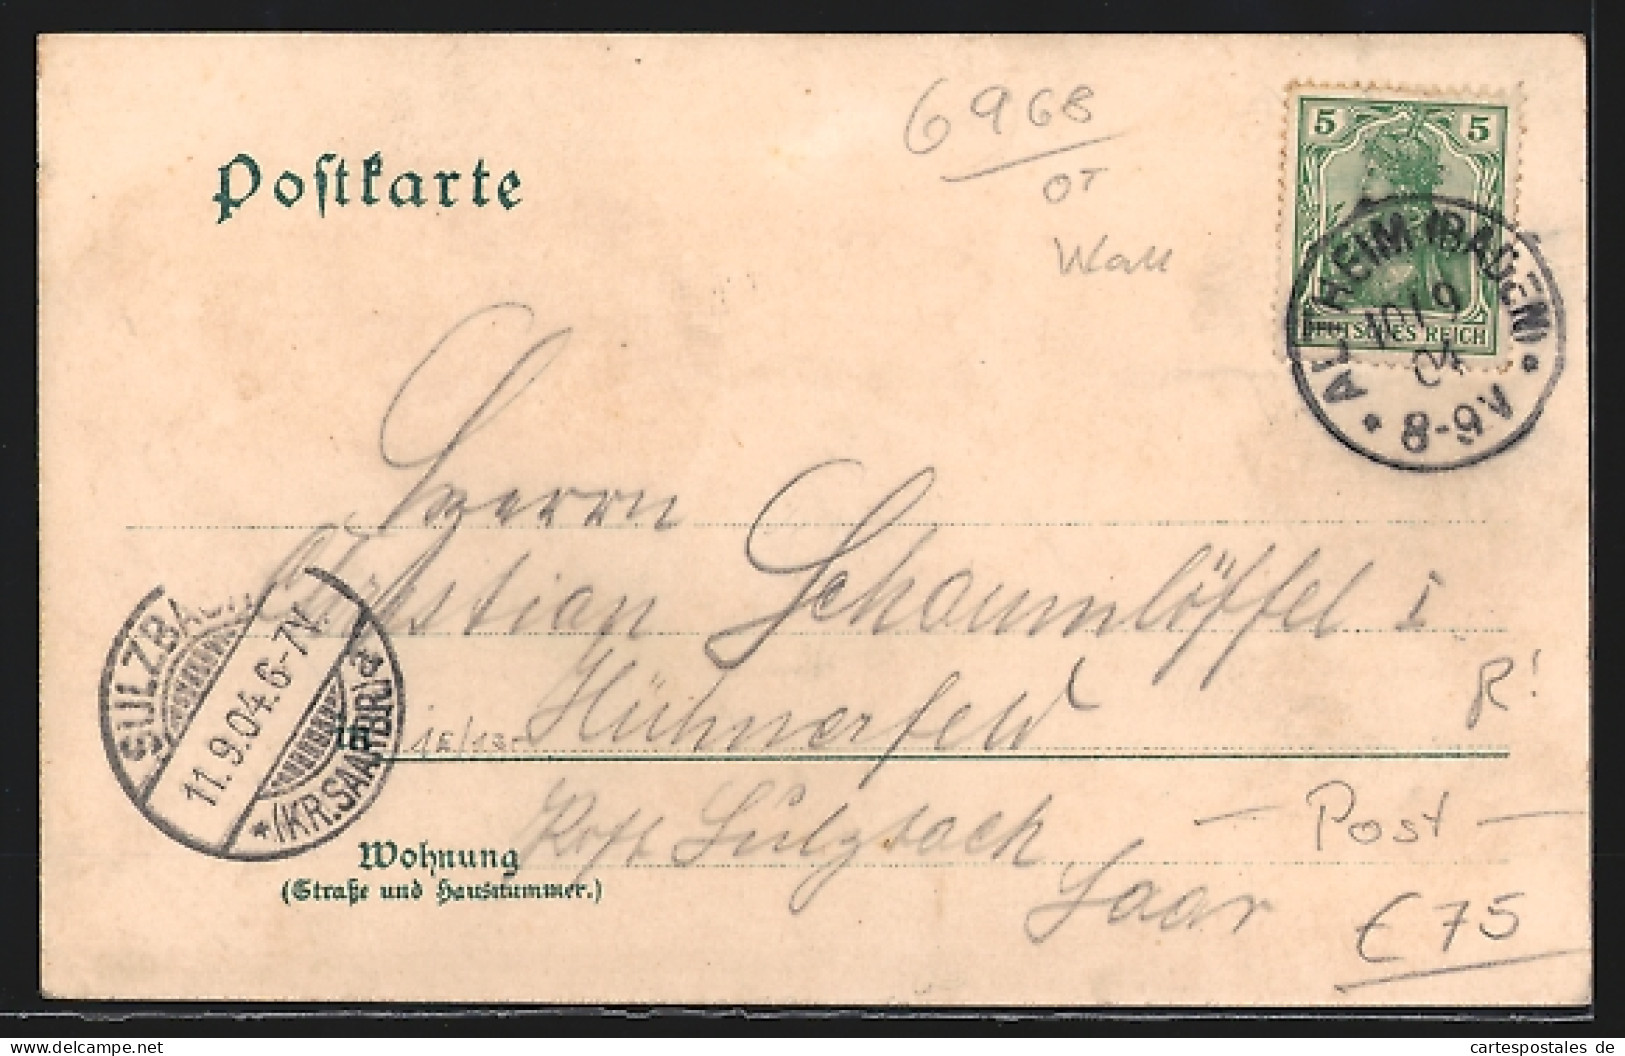 Postkarte
6968
OT
Wall
5 5
DEUTSCHES REICH
ALTHEIM (BADEN)
10/9
04
8-9V
Herrn
Christian Schaumlöffel I
Hühnerfeld
in
R!
SULZBACH
11.9.04.6-7N.
*(KR.SAARBR.)a
Post Sulzbach
Saar
Wohnung
(Straße und Hausnummer.)
– Post –
€ 75
cartespostales de
delcampe.net